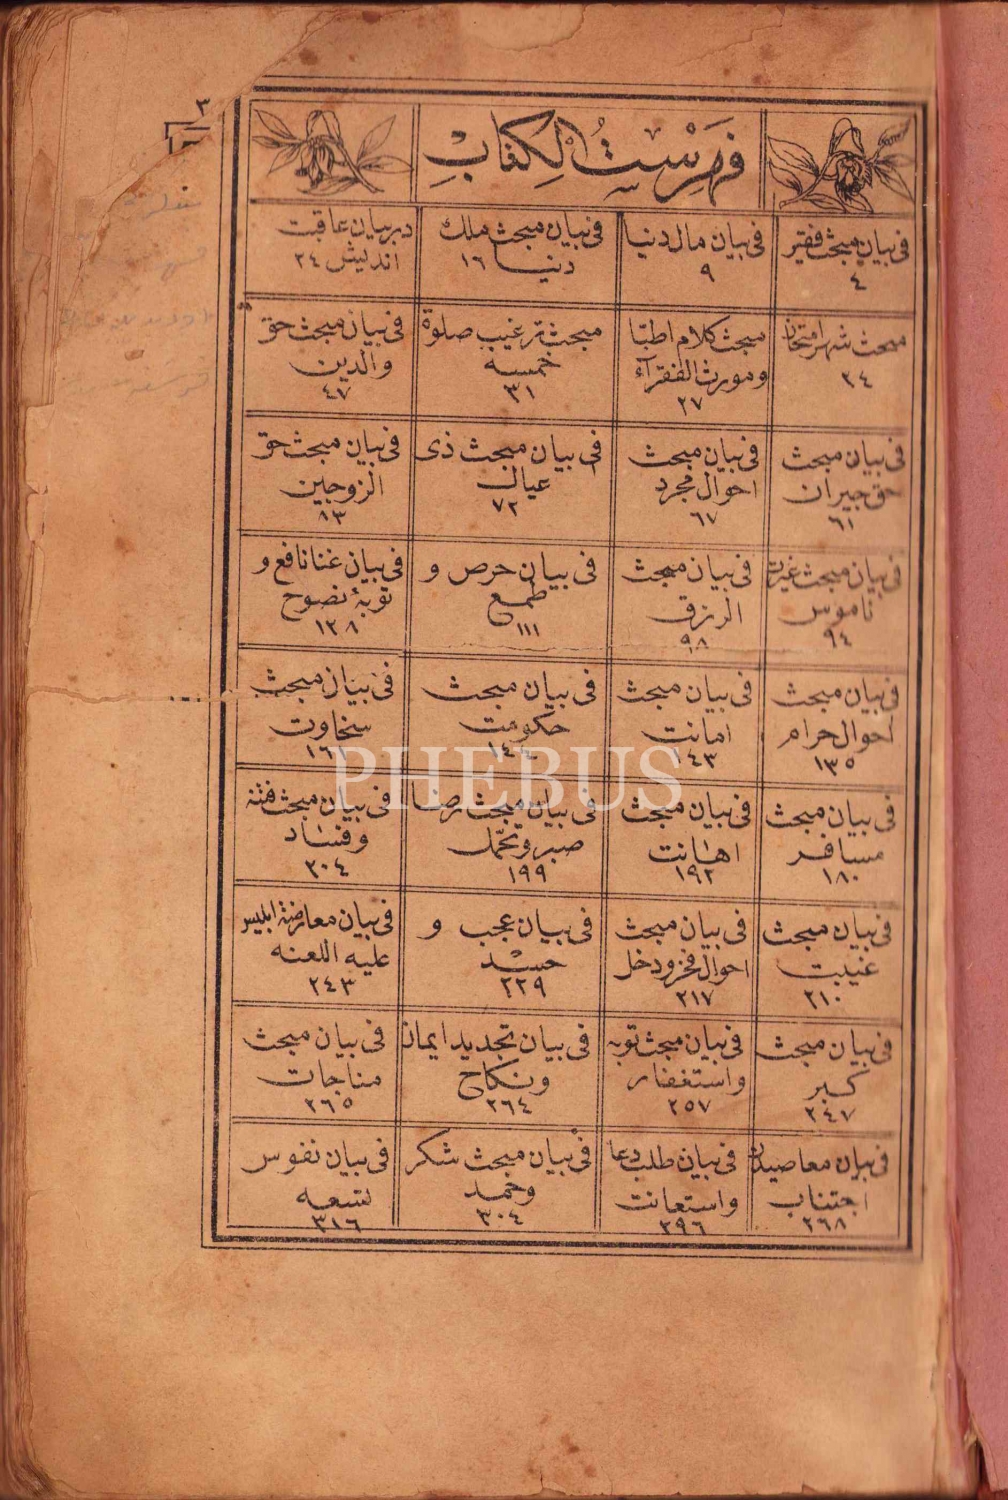 ٣
فهرست الكتاب
فى بيان مبحث فقير
٤
فى بيان مال دنيا
٩
فى بيان مبحث ملك
دنيا ١٦
در بيان عاقبت
انديش ٢٤
مبحث شهر امتحان
٢٤
مبحث كلام اطبا
ومورث الفقرآء
٢٧
مبحث ترغيب صلوة
خمسه
٣١
فى بيان مبحث حق
والدين
٤٧
فى بيان مبحث
حق جيران
٦١
فى بيان مبحث
احوال مجرد
٦٧
فى بيان مبحث ذى
عيال
٧٢
فى بيان مبحث حق
الزوجين
٨٣
فى بيان مبحث غيرت
ناموس
٩٤
فى بيان مبحث
الرزق
٩٨
فى بيان حرص و
طمع
١١١
فى بيان غنا نافع و
توبهٔ نصوح
١٢٨
فى بيان مبحث
احوال حرام
١٣٥
فى بيان مبحث
امانت
١٤٣
فى بيان مبحث
حكومت
١٤٤
فى بيان مبحث
سخاوت
١٦١
فى بيان مبحث
مسافر
١٨٠
فى بيان مبحث
اهانت
١٩٢
فى بيان مبحث رضا
صبر وتحمل
١٩٩
فى بيان مبحث فتنه
وفساد
٢٠٤
فى بيان مبحث
غيبت
٢١٠
فى بيان مبحث
احوال فخر ودخل
٢١٧
فى بيان عجب و
حسد
٢٢٩
فى بيان معارضهٔ ابليس
عليه اللعنه
٢٤٣
فى بيان مبحث
كبر
٢٤٧
فى بيان مبحث توبه
واستغفار
٢٥٧
فى بيان تجديد ايمان
ونكاح
٢٦٤
فى بيان مبحث
مناجات
٢٦٥
فى بيان معاصيدن
اجتناب
٢٦٨
فى بيان طلب دعا
واستعانت
٢٩٦
فى بيان مبحث شكر
وحمد
٣٠٤
فى بيان نفوس
تسعه
٣١٦
PHEBUS